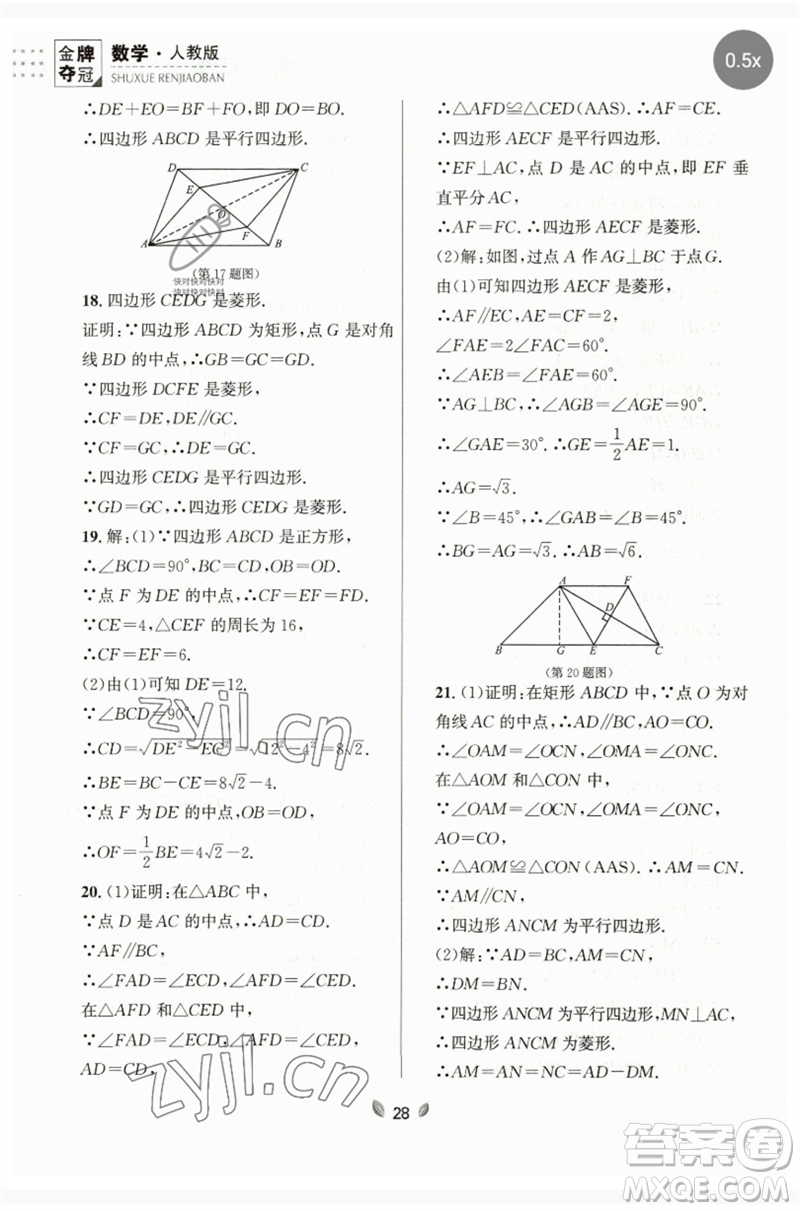 金牌夺冠
数学·人教版
SHUXUE RENJIAOBAN
0.5x
∴DE+EO=BF+FO,即 DO=BO.
∴四边形 ABCD 是平行四边形.
D
C
E
O
F
A
B
(第17题图)
快对快对快对
快对快对快对
18.四边形 CEDG 是菱形.
证明:∵四边形 ABCD 为矩形,点 G 是对角
线 BD 的中点,∴GB=GC=GD.
∵四边形 DCFE 是菱形,
∴CF=DE,DE∥GC.
∵CF=GC,∴DE=GC.
∴四边形 CEDG 是平行四边形.
∵GD=GC,∴四边形 CEDG 是菱形.
19.解:(1)∵四边形 ABCD 是正方形,
∴∠BCD=90°,BC=CD,OB=OD.
∵点 F 为 DE 的中点,∴CF=EF=FD.
∵CE=4,△CEF 的周长为 16,
∴CF=EF=6.
(2)由(1)可知 DE=12.
∵∠BCD=90°,
∴CD=√DE²-EC²=√12²-4²=8√2.
∴BE=BC-CE=8√2-4.
∵点 F 为 DE 的中点,OB=OD,
∴OF=1/2BE=4√2-2.
20.(1)证明:在△ABC 中,
∵点 D 是 AC 的中点,∴AD=CD.
∵AF∥BC,
∴∠FAD=∠ECD,∠AFD=∠CED.
在△AFD 和△CED 中,
∵∠FAD=∠ECD,∠AFD=∠CED,
AD=CD,
∴△AFD≌△CED(AAS).∴AF=CE.
∴四边形 AECF 是平行四边形.
∵EF⊥AC,点 D 是 AC 的中点,即 EF 垂
直平分 AC,
∴AF=FC.∴四边形 AECF 是菱形.
(2)解:如图,过点 A 作 AG⊥BC 于点 G.
由(1)可知四边形 AECF 是菱形,
∴AF∥EC,AE=CF=2,
∠FAE=2∠FAC=60°.
∴∠AEB=∠FAE=60°.
∵AG⊥BC,∴∠AGB=∠AGE=90°.
∴∠GAE=30°.∴GE=1/2AE=1.
∴AG=√3.
∵∠B=45°,∴∠GAB=∠B=45°.
∴BG=AG=√3.∴AB=√6.
A
F
D
B
G
E
C
(第20题图)
21.(1)证明:在矩形 ABCD 中,∵点 O 为对
角线 AC 的中点,∴AD∥BC,AO=CO.
∴∠OAM=∠OCN,∠OMA=∠ONC.
在△AOM 和△CON 中,
∵∠OAM=∠OCN,∠OMA=∠ONC,
AO=CO,
∴△AOM≌△CON(AAS).∴AM=CN.
∵AM∥CN,
∴四边形 ANCM 为平行四边形.
(2)解:∵AD=BC,AM=CN,
∴DM=BN.
∵四边形 ANCM 为平行四边形,MN⊥AC,
∴四边形 ANCM 为菱形.
∴AM=AN=NC=AD-DM.
zyjl.cn
zyjl.cn
28
答案卷
MXQE.COM